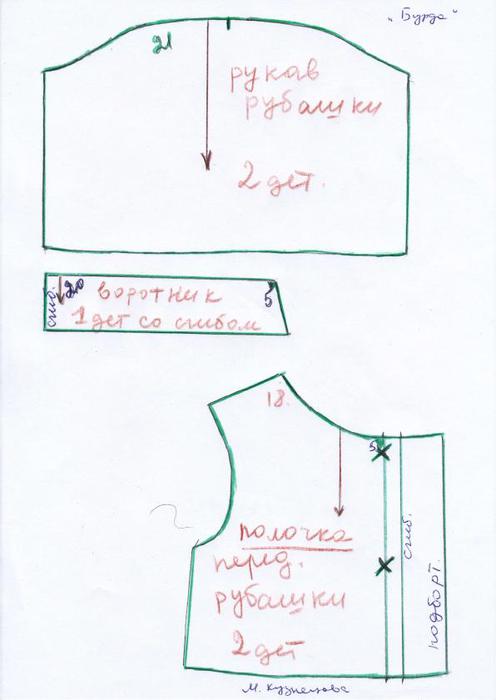 "Бурда"
21
рукав
рубашки
2 дет.
сгиб.
20
воротник
5
1 дет со сгибом
18.
5
полочка
перед.
рубашки
2 дет
сгиб.
подборт.
М. Кузнецова